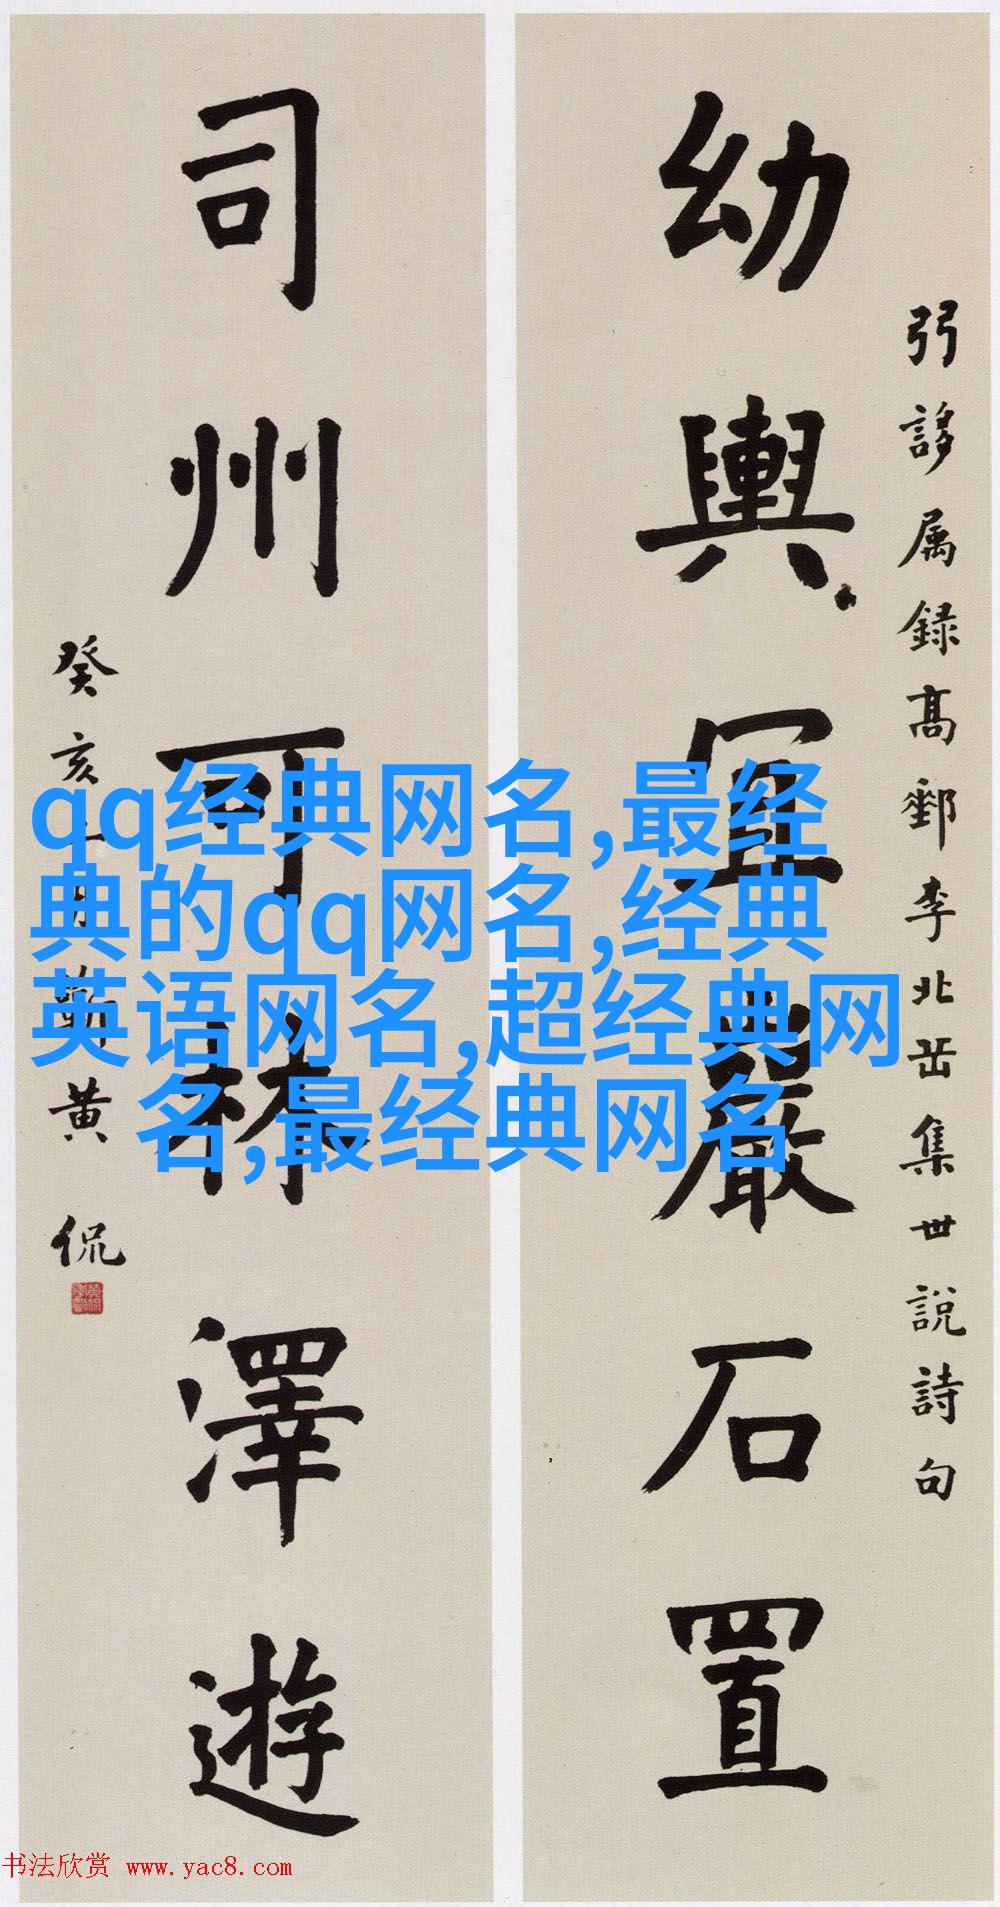 弜誃属録高郵李北岳集世說詩句
幼輿宜嚴石置
司州可林澤遊
癸亥十月蘄黄侃
qq经典网名,最经
典的qq网名,经典
英语网名,超经典网
名,最经典网名
书法欣赏 www.yac8.com